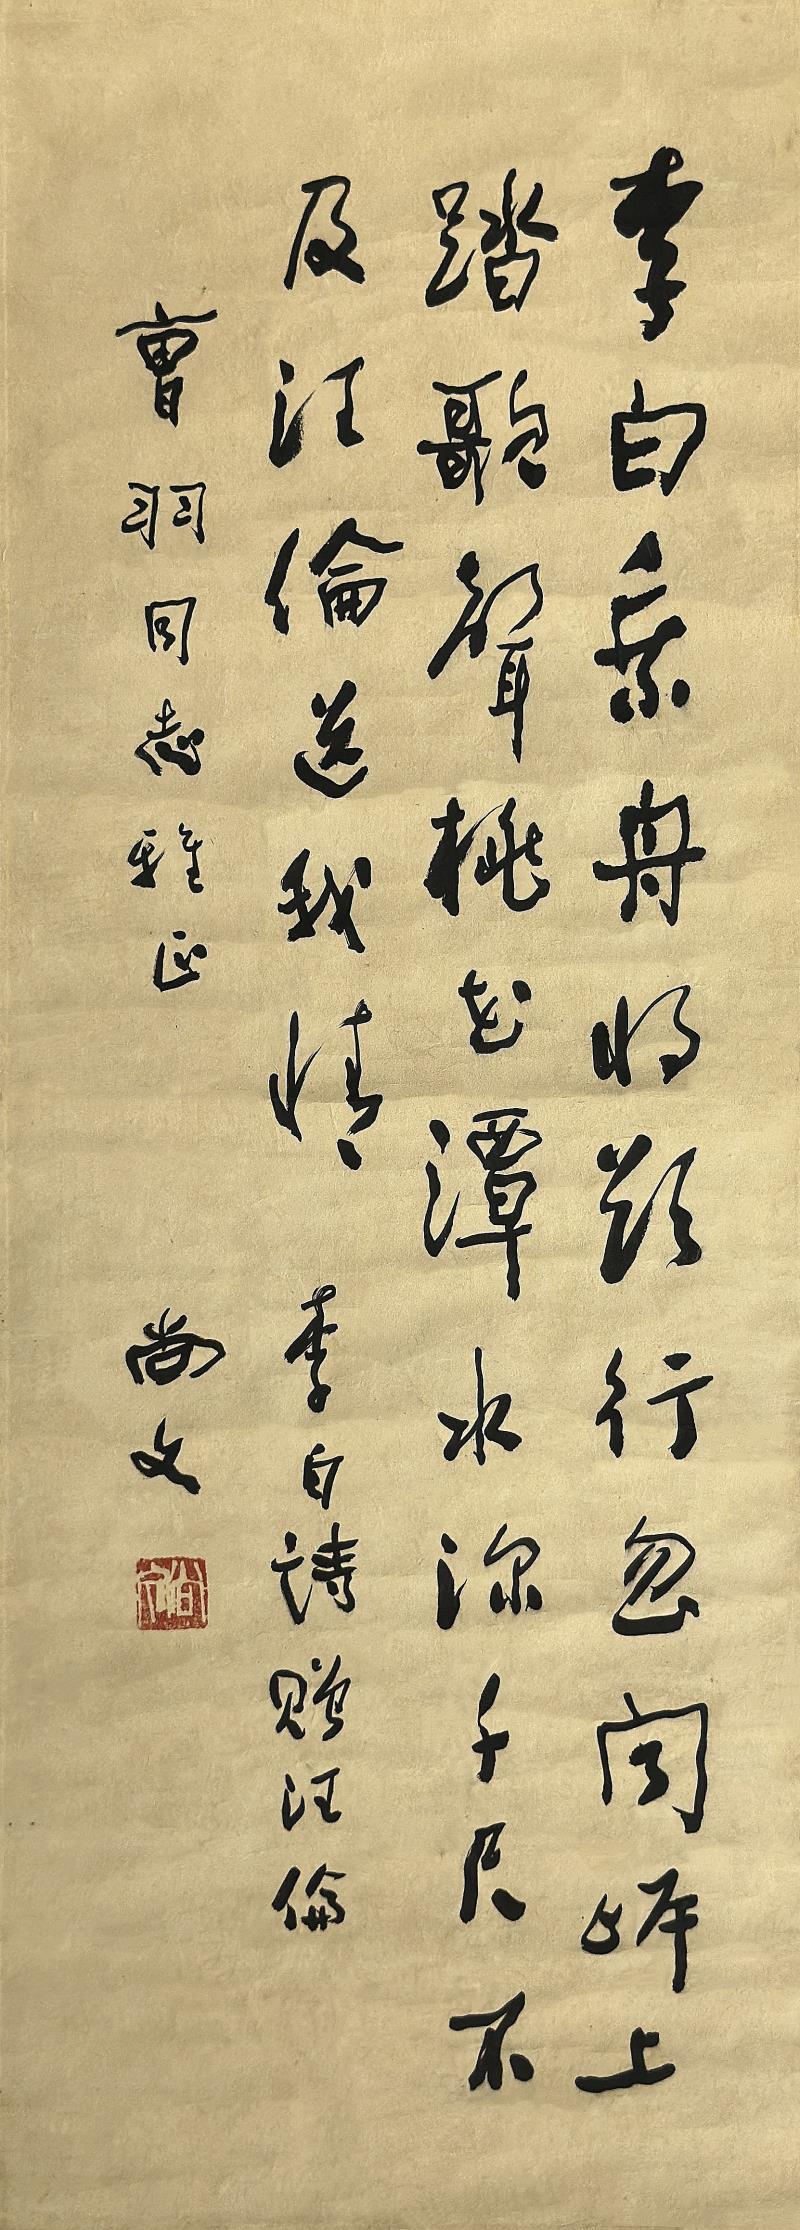 李白乘舟将欲行忽闻岸上
踏歌聲桃花潭水深千尺不
及汪倫送我情 李白詩赠汪倫
曹羽同志雅正 尚文